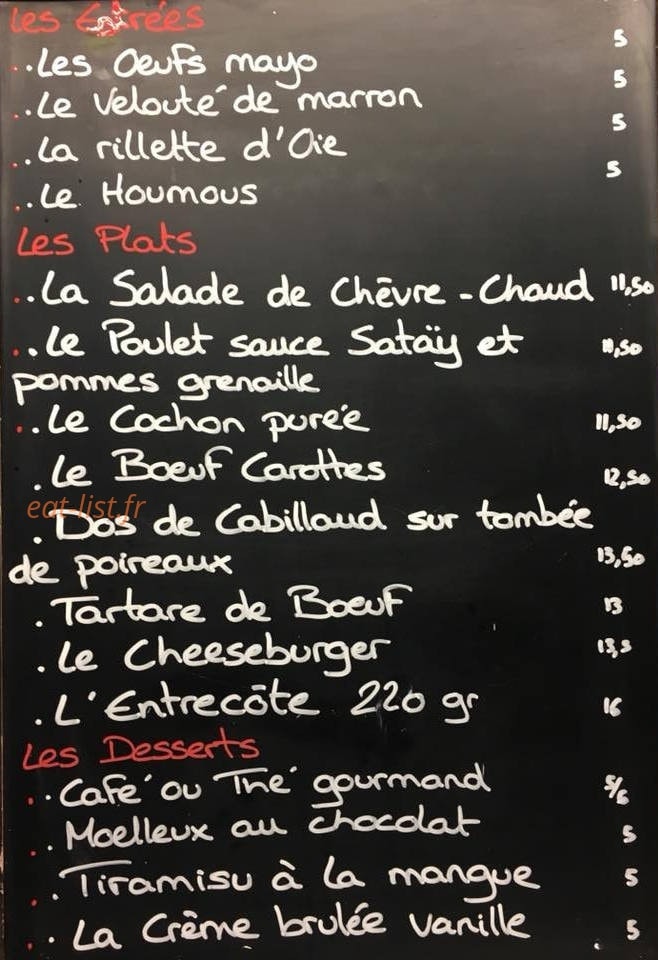 Les Entrées
..Les Oeufs mayo 5
..Le Velouté de marron 5
..La rillette d'Oie 5
..Le Houmous 5
Les Plats
..La Salade de Chèvre-Chaud 11,50
..Le Poulet sauce Sataÿ et 11,50
pommes grenaille
..Le Cochon purée 11,50
.Le Bœuf Carottes 12,50
eat-list.fr
.Dos de Cabillaud sur tombée
de poireaux 13,50
.Tartare de Bœuf 13
.Le Cheeseburger 13,5
.L'Entrecôte 220 gr 16
Les Desserts
..Café ou Thé gourmand 5/6
..Moelleux au chocolat 5
..Tiramisu à la mangue 5
..La Crème brulée vanille 5